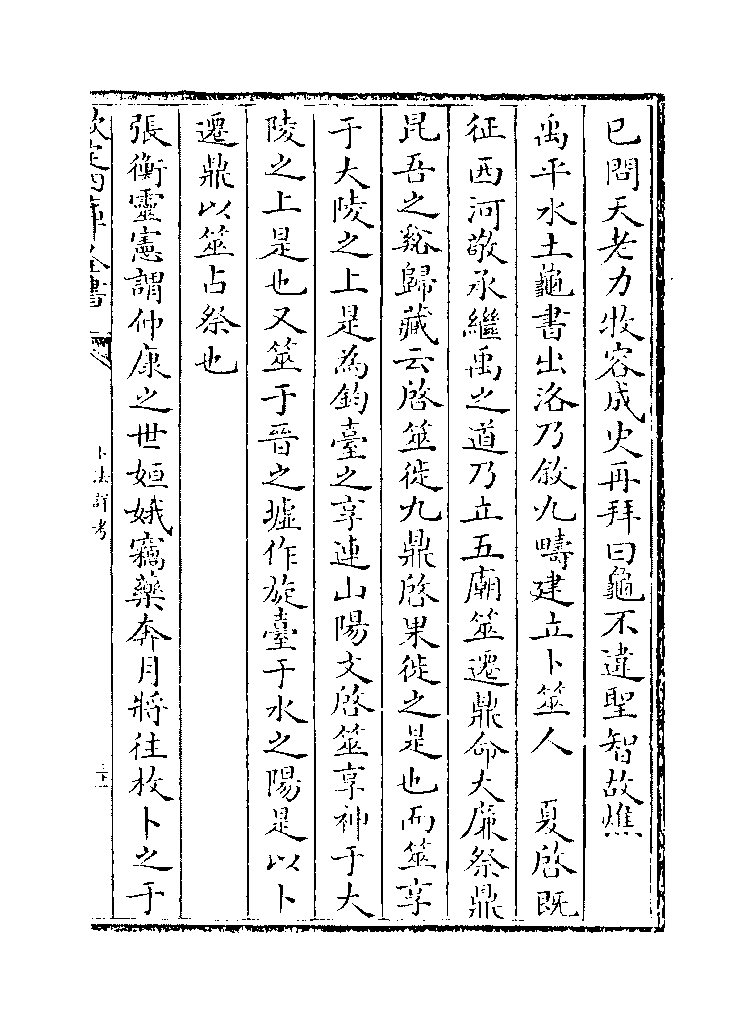 已問天老力牧容成史再拜曰龜不違聖智故燋
禹平水土龜書出洛乃敘九疇建立卜筮人　夏啓既
征西河敬承繼禹之道乃立五廟筮遷鼎命大廉祭鼎
昆吾之谿歸藏云啓筮徙九鼎啓果徙之是也而筮享
于大陵之上是為鈞臺之享連山陽文啓筮享神于大
陵之上是也又筮于晉之墟作旋臺于水之陽是以卜
遷鼎以筮占祭也
張衡靈憲謂仲康之世姮娥竊藥奔月將往枚卜之于
欽定四庫全書
卜法詳考